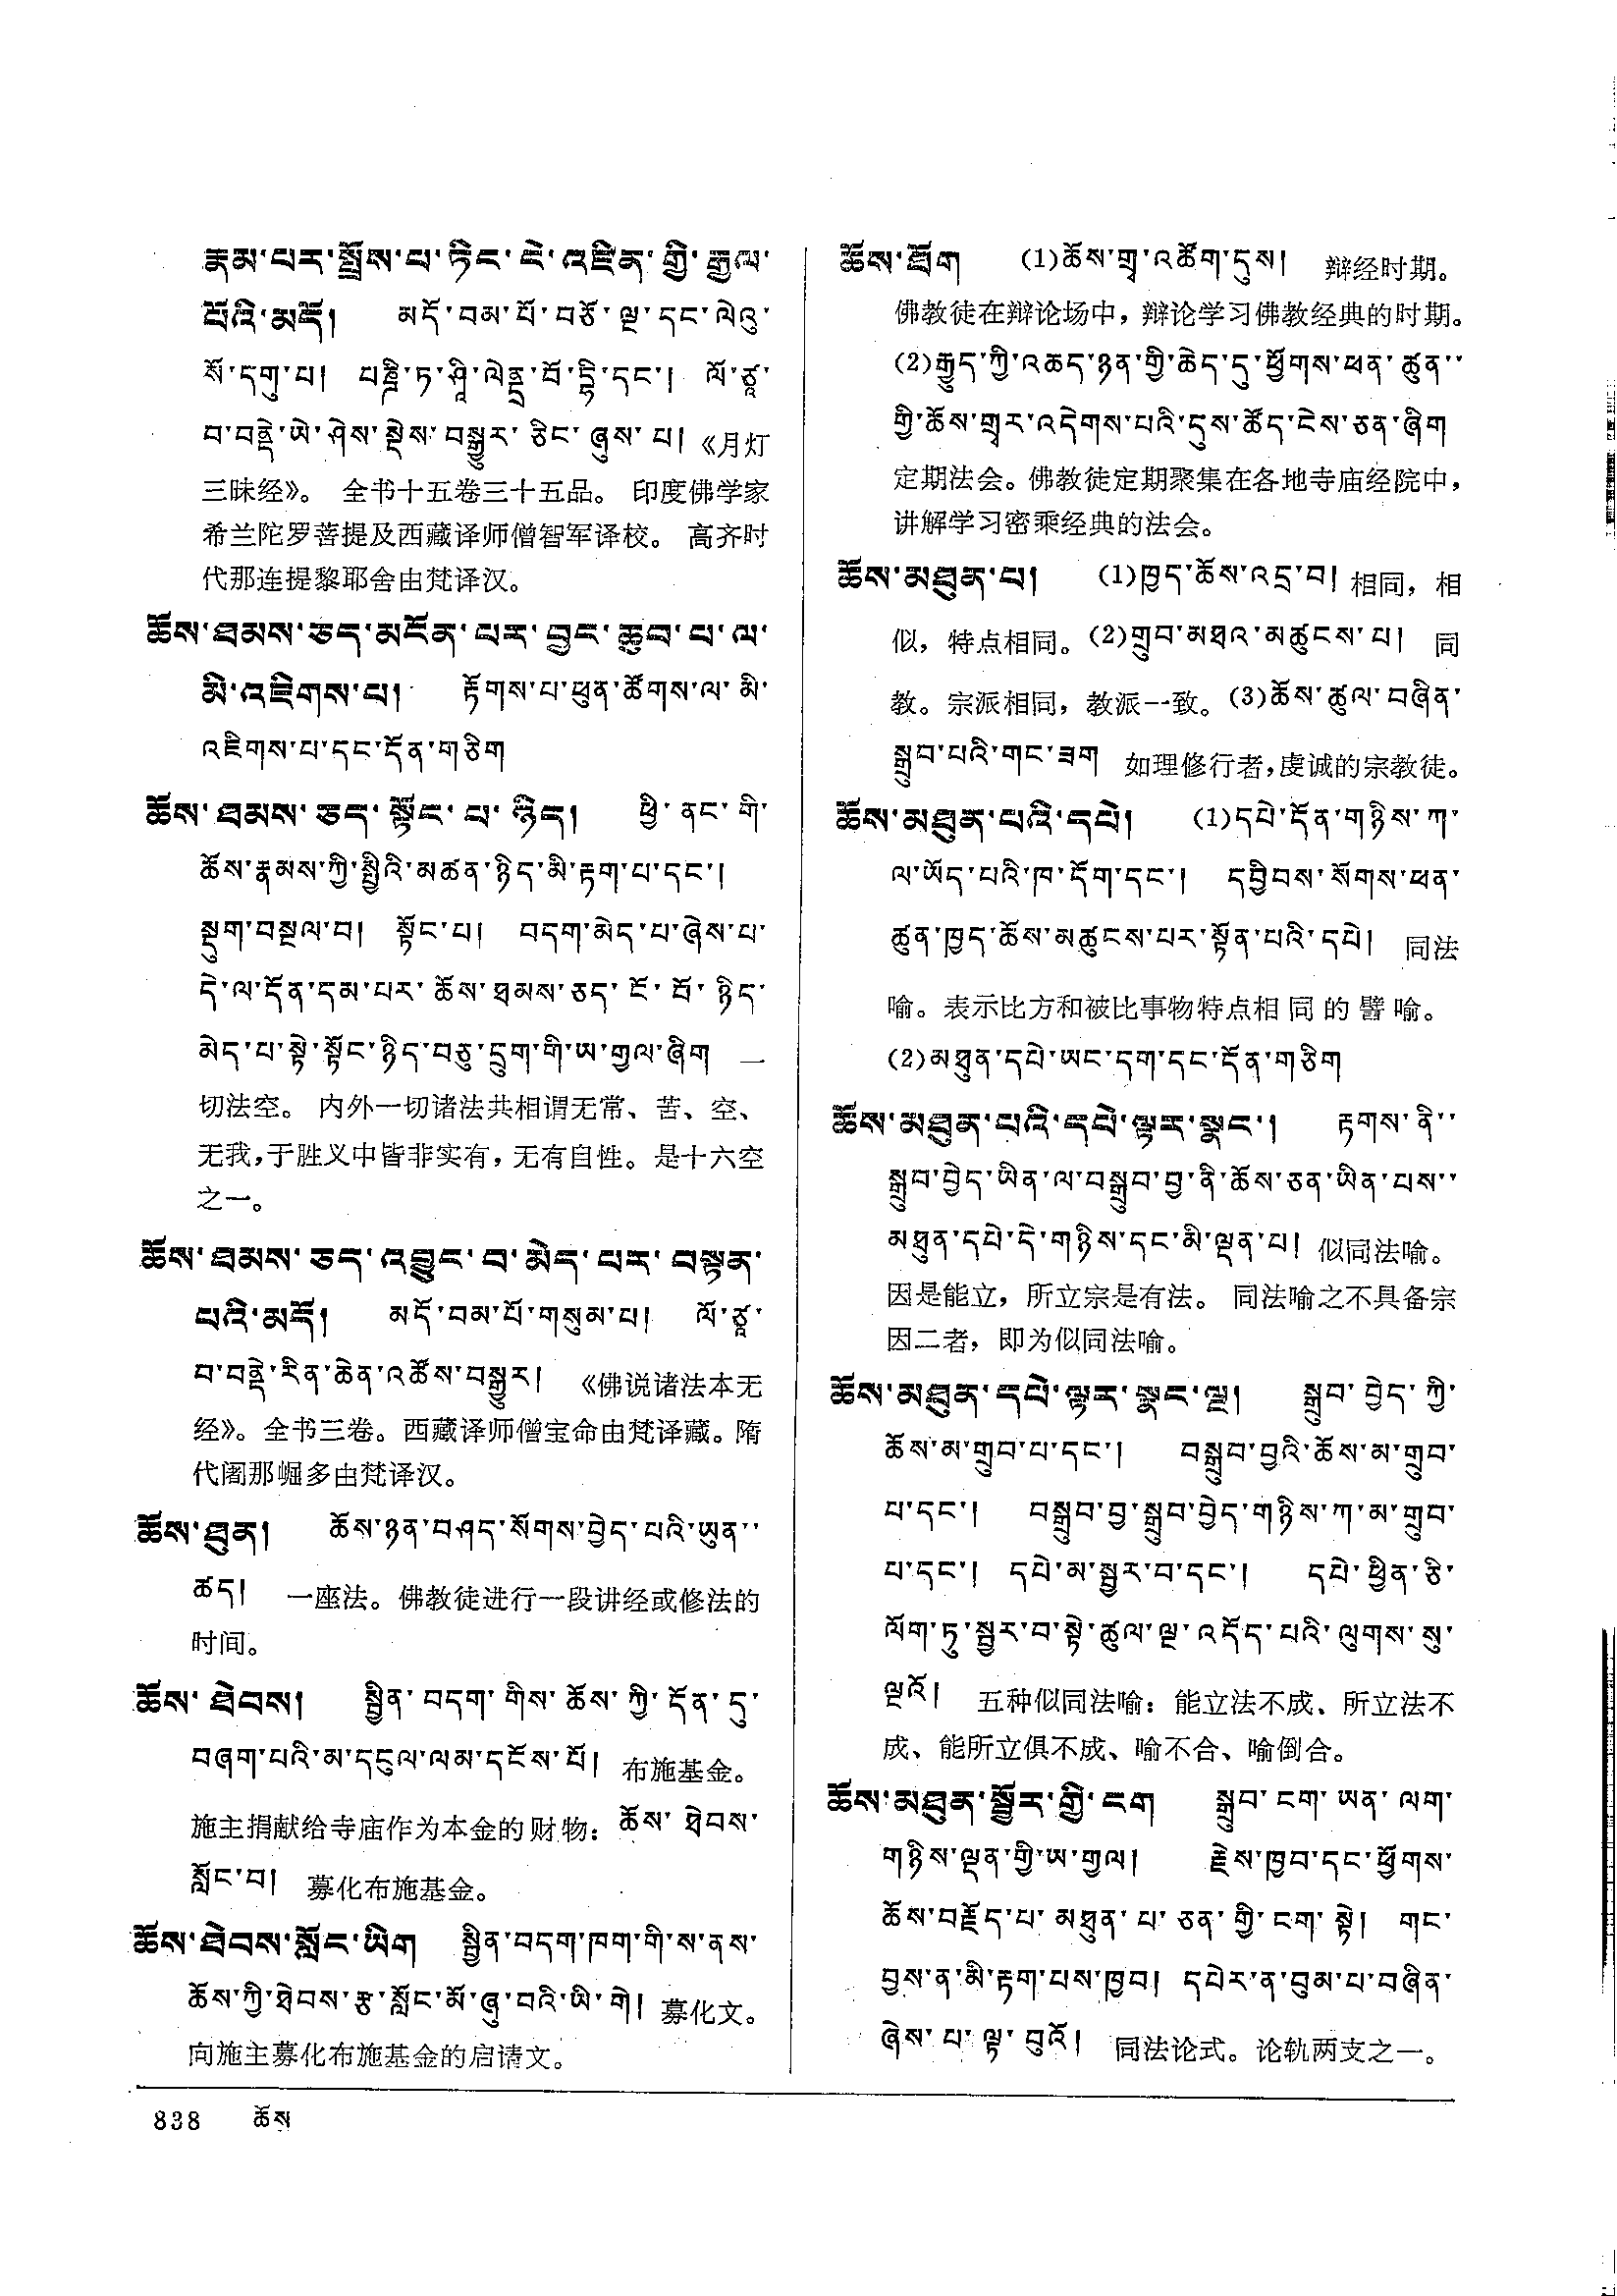 རྣམ་པར་སྤྲོས་པ་ཏིང་ངེ་འཛིན་གྱི་རྒྱལ་
པོའི་མདོ། མདོ་བམ་པོ་བཅོ་ལྔ་དང་ལེའུ་
སོ་དགུ་པ། པཎྜི་ཏ་ཤཱི་ལེནྡྲ་བོ་དྷི་དང་། ལོ་ཙཱ་
བ་བནྡེ་ཡེ་ཤེས་སྡེས་བསྒྱུར་ཅིང་ཞུས་པ། 《月灯
三昧经》。 全书十五卷三十五品。 印度佛学家
希兰陀罗菩提及西藏译师僧智军译校。 高齐时
代那连提黎耶舍由梵译汉。
ཆོས་ཐམས་ཅད་མངོན་པར་བྱང་ཆུབ་པ་ལ་
མི་འཇིགས་པ། རྟོགས་པ་ཕུན་ཚོགས་ལ་མི་
འཇིགས་པ་དང་དོན་གཅིག
ཆོས་ཐམས་ཅད་སྟོང་པ་ཉིད། ཕྱི་ནང་གི་
ཆོས་རྣམས་ཀྱི་སྤྱིའི་མཚན་ཉིད་མི་རྟག་པ་དང་།
སྡུག་བསྔལ་བ། སྟོང་པ། བདག་མེད་པ་ཞེས་པ་
དེ་ལ་དོན་དམ་པར་ཆོས་ཐམས་ཅད་ངོ་བོ་ཉིད་
མེད་པ་སྟེ་སྟོང་ཉིད་བཅུ་དྲུག་གི་ཡ་གྱལ་ཞིག 一
切法空。 内外一切诸法共相谓无常、苦、空、
无我,于胜义中皆非实有,无有自性。是十六空
之一。
ཆོས་ཐམས་ཅད་འབྱུང་བ་མེད་པར་བསྟན་
པའི་མདོ། མདོ་བམ་པོ་གསུམ་པ། ལོ་ཙཱ་
བ་བནྡེ་རིན་ཆེན་འཚོས་བསྒྱུར། 《佛说诸法本无
经》。全书三卷。西藏译师僧宝命由梵译藏。隋
代阇那崛多由梵译汉。
ཆོས་ཐུན། ཆོས་ཉན་བཤད་སོགས་བྱེད་པའི་ཡུན་་
ཚད། 一座法。佛教徒进行一段讲经或修法的
时间。
ཆོས་ཐེབས། སྦྱིན་བདག་གིས་ཆོས་ཀྱི་དོན་དུ་
བཞག་པའི་མ་དངུལ་ལམ་དངོས་པོ། 布施基金。
施主捐献给寺庙作为本金的财物: ཆོས་ཐེབས་
སློང་བ། 募化布施基金。
ཆོས་ཐེབས་སློང་ཡིག སྦྱིན་བདག་ཁག་གི་ས་ནས་
ཆོས་ཀྱི་ཐེབས་རྩ་སློང་མོ་ཞུ་བའི་ཡི་གེ། 募化文。
向施主募化布施基金的启请文。
ཆོས་ཐོག (1)ཆོས་གྲྭ་འཚོག་དུས། 辩经时期。
佛教徒在辩论场中,辩论学习佛教经典的时期。
(2)རྒྱུད་ཀྱི་འཆད་ཉན་གྱི་ཆེད་དུ་ཕྱོགས་ཕན་ཚུན་་
གྱི་ཆོས་གྲྭར་འདེགས་པའི་དུས་ཚོད་ངེས་ཅན་ཞིག
定期法会。佛教徒定期聚集在各地寺庙经院中,
讲解学习密乘经典的法会。
ཆོས་མཐུན་པ། (1)ཁྱད་ཆོས་འདྲ་བ། 相同,相
似,特点相同。(2)གྲུབ་མཐའ་མཚུངས་པ། 同
教。宗派相同,教派一致。(3)ཆོས་ཚུལ་བཞིན་
སྒྲུབ་པའི་གང་ཟག 如理修行者,虔诚的宗教徒。
ཆོས་མཐུན་པའི་དཔེ། (1)དཔེ་དོན་གཉིས་ཀ་
ལ་ཡོད་པའི་ཁ་དོག་དང་། དབྱིབས་སོགས་ཕན་
ཚུན་ཁྱད་ཆོས་མཚུངས་པར་སྟོན་པའི་དཔེ། 同法
喻。表示比方和被比事物特点相同的譬喻。
(2)མཐུན་དཔེ་ཡང་དག་དང་དོན་གཅིག
ཆོས་མཐུན་པའི་དཔེ་ལྟར་སྣང་། རྟགས་ནི་་
སྒྲུབ་བྱེད་ཡིན་ལ་བསྒྲུབ་བྱ་ནི་ཆོས་ཅན་ཡིན་པས་་
མཐུན་དཔེ་དེ་གཉིས་དང་མི་ལྡན་པ། 似同法喻。
因是能立,所立宗是有法。 同法喻之不具备宗
因二者,即为似同法喻。
ཆོས་མཐུན་དཔེ་ལྟར་སྣང་ལྔ། སྒྲུབ་བྱེད་ཀྱི་
ཆོས་མ་གྲུབ་པ་དང་། བསྒྲུབ་བྱའི་ཆོས་མ་གྲུབ་
པ་དང་། བསྒྲུབ་བྱ་སྒྲུབ་བྱེད་གཉིས་ཀ་མ་གྲུབ་
པ་དང་། དཔེ་མ་སྦྱར་བ་དང་། དཔེ་ཕྱིན་ཅི་
ལོག་ཏུ་སྦྱར་བ་སྟེ་ཚུལ་ལྔ་འདོད་པའི་ལུགས་སུ་
ལྔའོ། 五种似同法喻: 能立法不成、所立法不
成、能所立俱不成、喻不合、喻倒合。
ཆོས་མཐུན་སྦྱོར་གྱི་ངག སྒྲུབ་ངག་ཡན་ལག་
གཉིས་ལྡན་གྱི་ཡ་གྱལ། རྗེས་ཁྱབ་དང་ཕྱོགས་
ཆོས་བརྗོད་པ་མཐུན་པ་ཅན་གྱི་ངག་སྟེ། གང་
བྱས་ན་མི་རྟག་པས་ཁྱབ། དཔེར་ན་བུམ་པ་བཞིན་
ཞེས་པ་ལྟ་བུའོ། 同法论式。论轨两支之一。
838 ཆོས